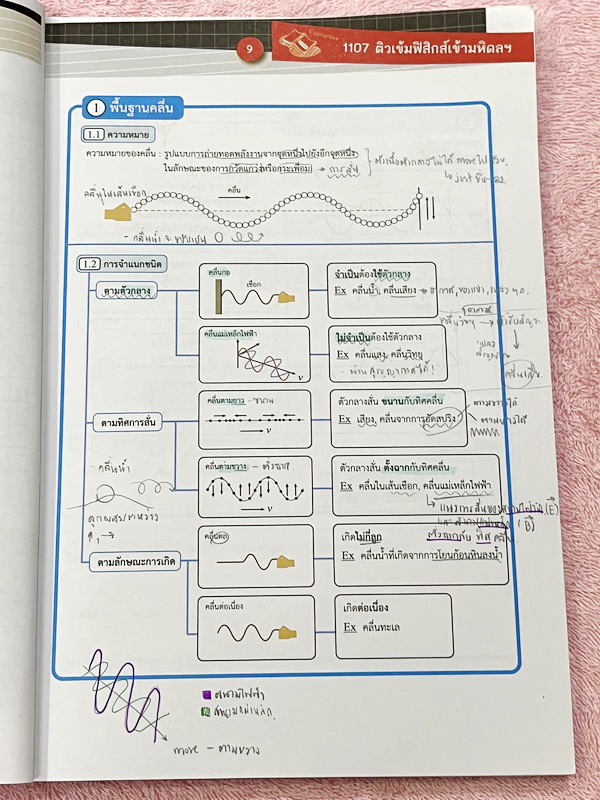 9
1107 ติวเข้มฟิสิกส์เข้ามหิดลฯ
1 พื้นฐานคลื่น
1.1 ความหมาย
ความหมายของคลื่น : รูปแบบการถ่ายทอดพลังงานจากจุดหนึ่งไปยังอีกจุดหนึ่ง
ในลักษณะของการกวัดแกว่ง(หรือกระเพื่อม) → การสั่น
คลื่นในเส้นเชือก
คลื่น
1.2 การจำแนกชนิด
ตามตัวกลาง
คลื่นกล
เชือก
จำเป็นต้องใช้ตัวกลาง
Ex คลื่นน้ำ, คลื่นเสียง
คลื่นแม่เหล็กไฟฟ้า
v
ไม่จำเป็นต้องใช้ตัวกลาง
Ex คลื่นแสง, คลื่นวิทยุ
- ผ่านสุญญากาศได้!
ตามทิศการสั่น
คลื่นตามยาว - ขนาน
v
ตัวกลางสั่น ขนานกับทิศคลื่น
Ex เสียง, คลื่นจากการอัดสปริง
คลื่นตามขวาง - ตั้งฉาก
v
ตัวกลางสั่น ตั้งฉากกับทิศคลื่น
Ex คลื่นในเส้นเชือก, คลื่นแม่เหล็กไฟฟ้า
- คลื่นน้ำ
ตามลักษณะการเกิด
คลื่นดล
เกิดไม่กี่ลูก
Ex คลื่นน้ำที่เกิดจากการโยนก้อนหินลงน้ำ
คลื่นต่อเนื่อง
เกิดต่อเนื่อง
Ex คลื่นทะเล
สนามไฟฟ้า
สนามแม่เหล็ก
move - ตามขวาง